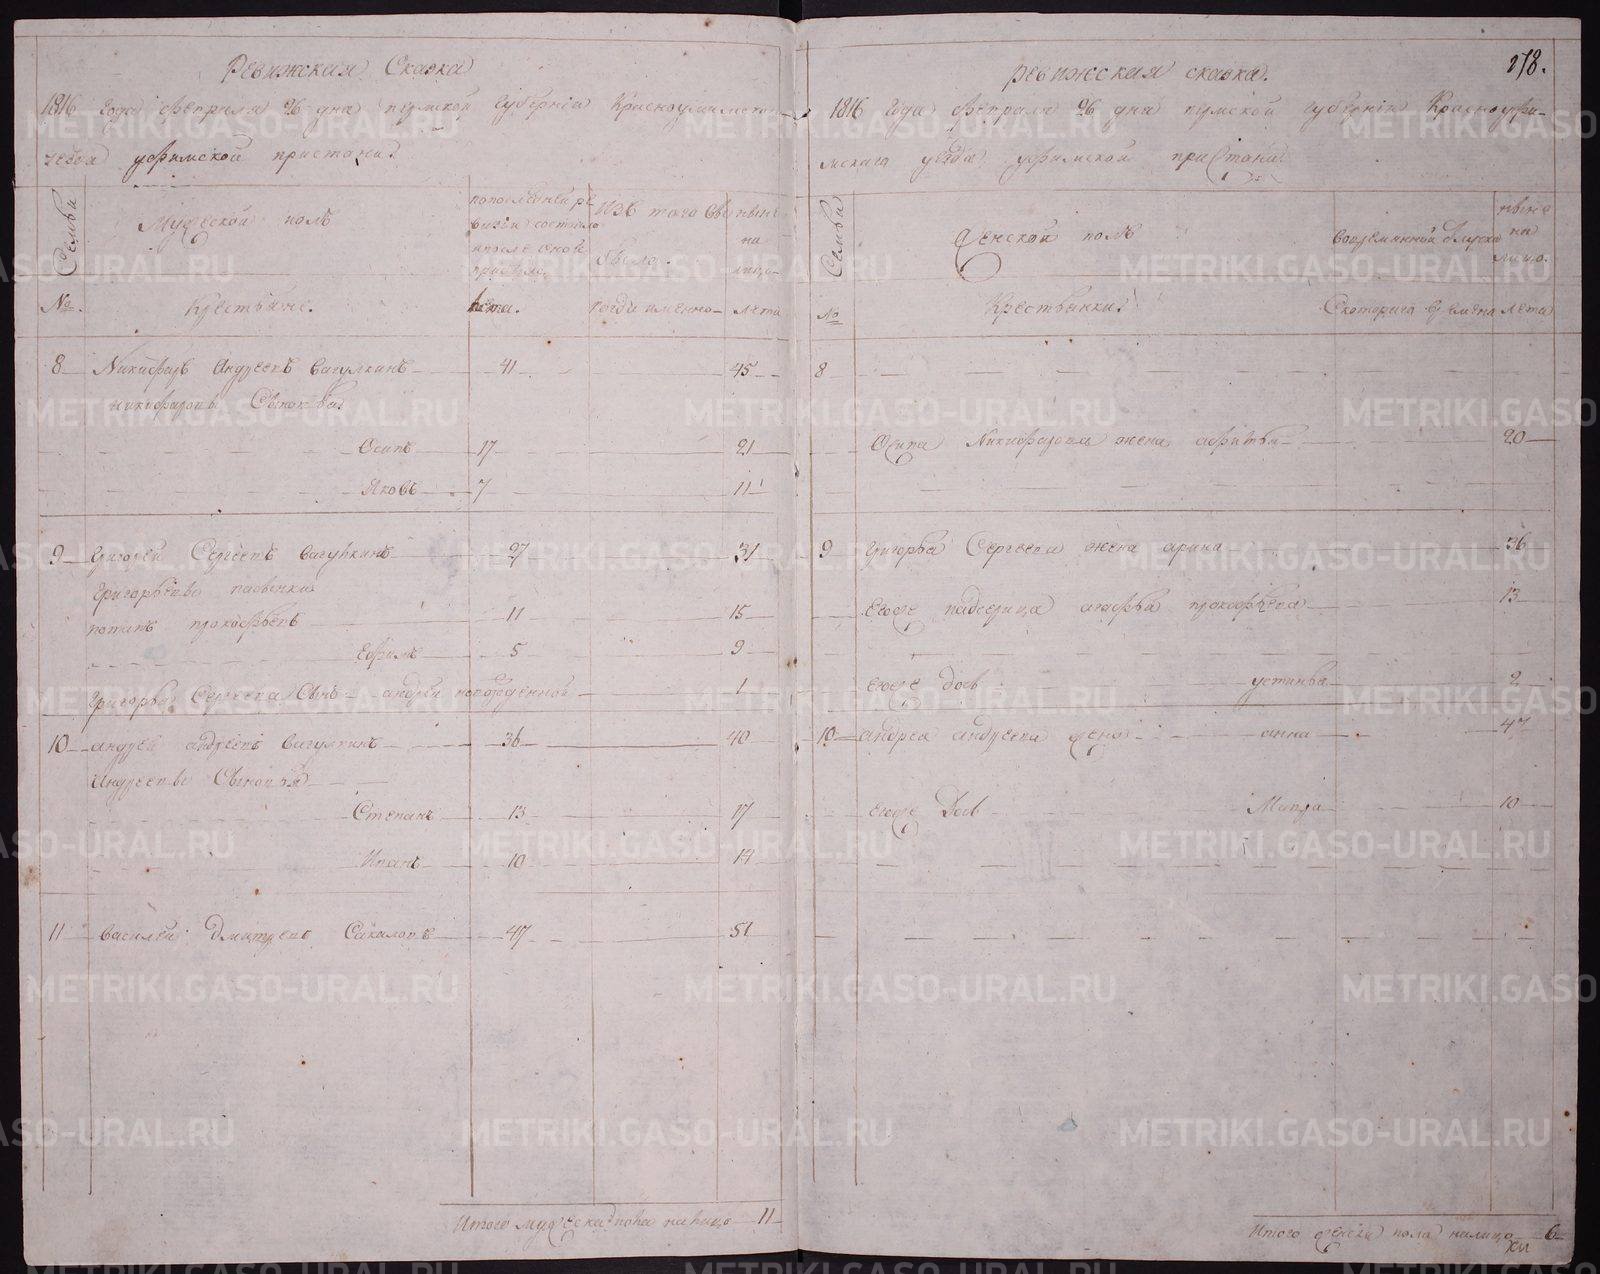 Ревижская Сказка
1816 года февраля 26 дна пермской губерніи Красноуфимского
уезда уфимской пристани.
Семьи
Мужеской полъ
по последней ре
визіи состояло
и после оной
прибыло.
Изъ того
было.
ныне
на
лицо
№.
Крестьяне.
Лета.
когда именно
лета
8 Никифоръ Андреевъ Вагулкинъ 41 45
Никифоровы Сыновья
Осипъ 17 21
Яковъ 7 11
9 Григорей Сергеевъ Вагулкинъ 27 31
Григорьевы пасынки
потапъ прокофьевъ 11 15
Ефимъ 5 9
Григорья Сергеева Сынъ андрей новорожденной 1
10 андрей андреевъ Вагулкинъ 36 40
Андреевы Сыновья
Степанъ 13 17
Иванъ 10 14
11 Василей Дмитревъ Сакаловъ 47 51
Итого мужеска пола на лицо 11
278.
ревижская сказка.
1816 года февраля 26 дна пермской губерніи Красноуфи-
мскага уезда уфимской пристани
Семьи
Женской полъ
во временной отлучке
ныне
на
лицо.
№
Крестьянки.
С котораго времени
лета
8
Осипа Никифорова жена 20
9 Григорья Сергеева жена арина 36
Егоже падчерица агафья прокофьева 13
Егоже дочь устинья 2
10 андрея андреева жена анна 47
Егоже Дочь Мавра 10
Итого женска пола налицо 6
METRIKI.GASO-URAL.RU